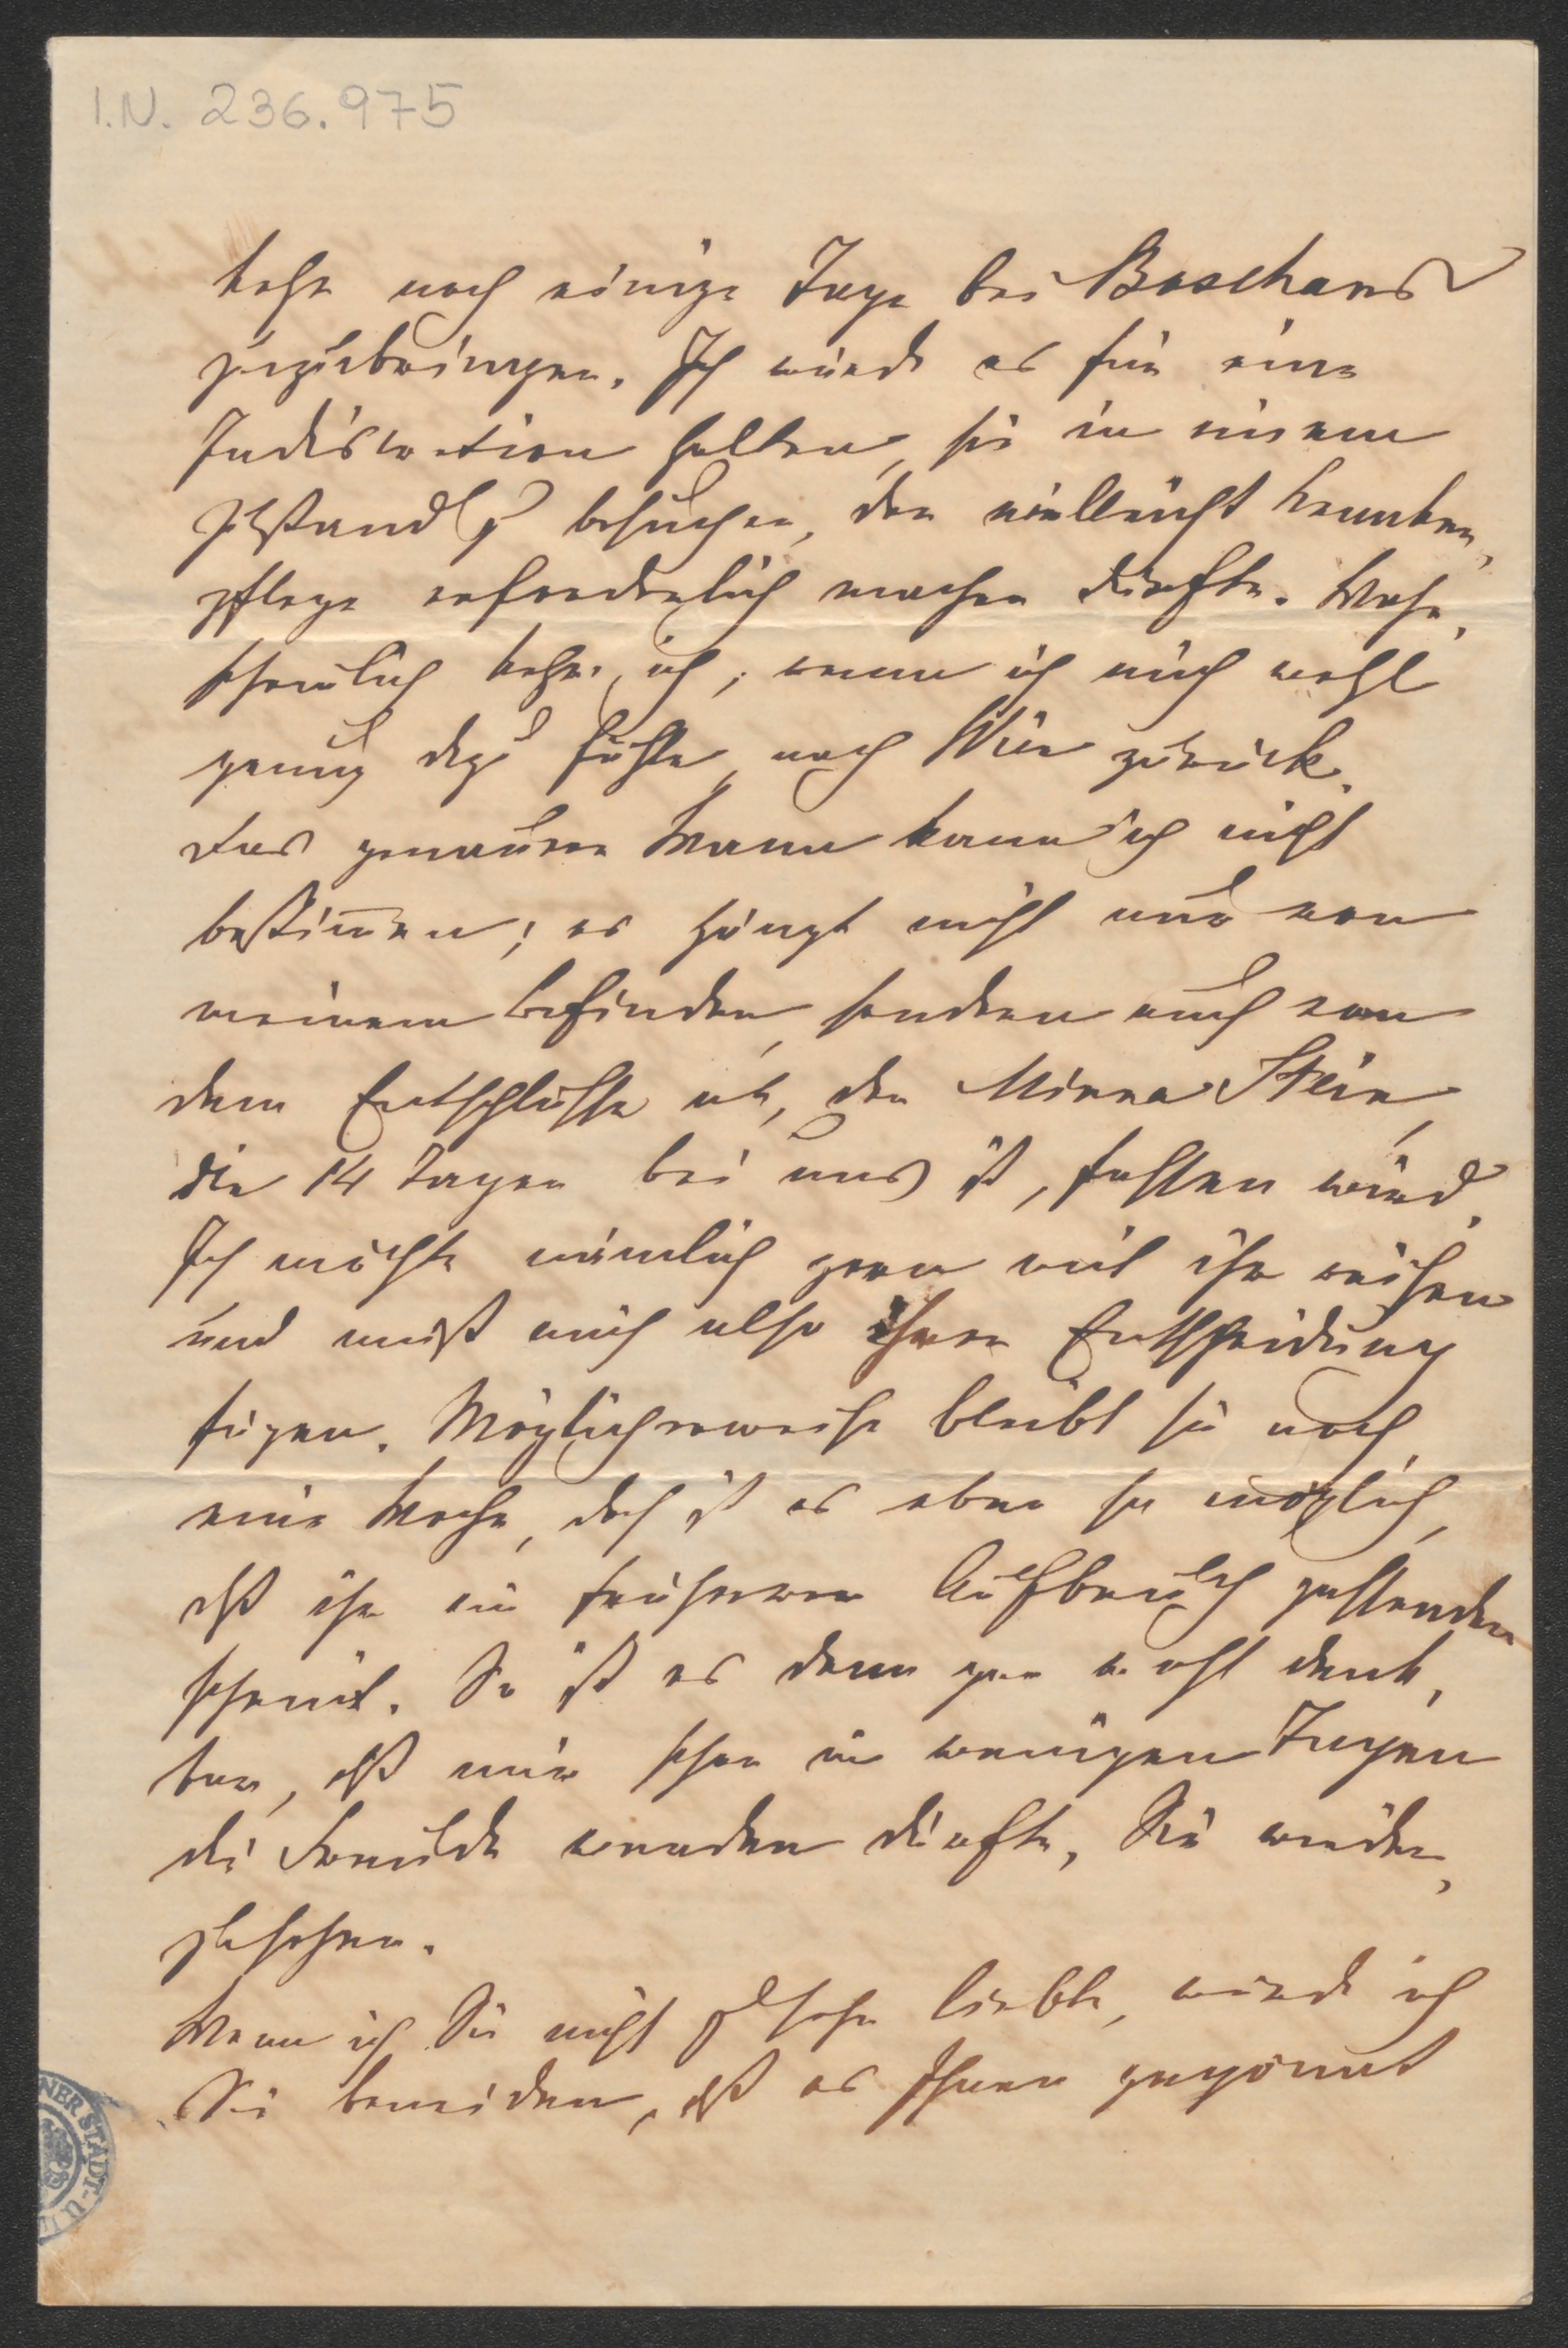 I.N. 236.975
kehr noch einige Tage bei Baschans
zuzubringen. Ich würde es für eine
Indiscretion halten, sie in einem
Zustand zu besuchen, der vielleicht Kranken-
pflege erforderlich machen dürfte. Wahr-
scheinlich kehre ich, wenn ich mich wohl
genug dazu fühle, nach Wien zurück.
Das genauere Wann kann ich nicht
bestim̄en; es hängt nicht nur von
meinem Befinden, sondern auch von
dem Entschlusse ab, den Minna Stein,
die 14 Tagen bei uns ist, fassen wird.
Ich möchte nämlich gern mit ihr reisen
und muß mich also ihrer Entscheidung
fügen. Möglicherweise bleibt sie noch
eine Woche, doch ist es eben so möglich,
daß ihr ein früherer Aufbruch passender
scheint. So ist es denn gar wohl denk-
bar, daß mir schon in wenigen Tagen
die Freude werden dürfte, Sie wieder-
zusehen.
Wenn ich Sie nicht so sehr liebte, würde ich
Sie beneiden, daß es Ihnen gegönnt
NER STADT- U